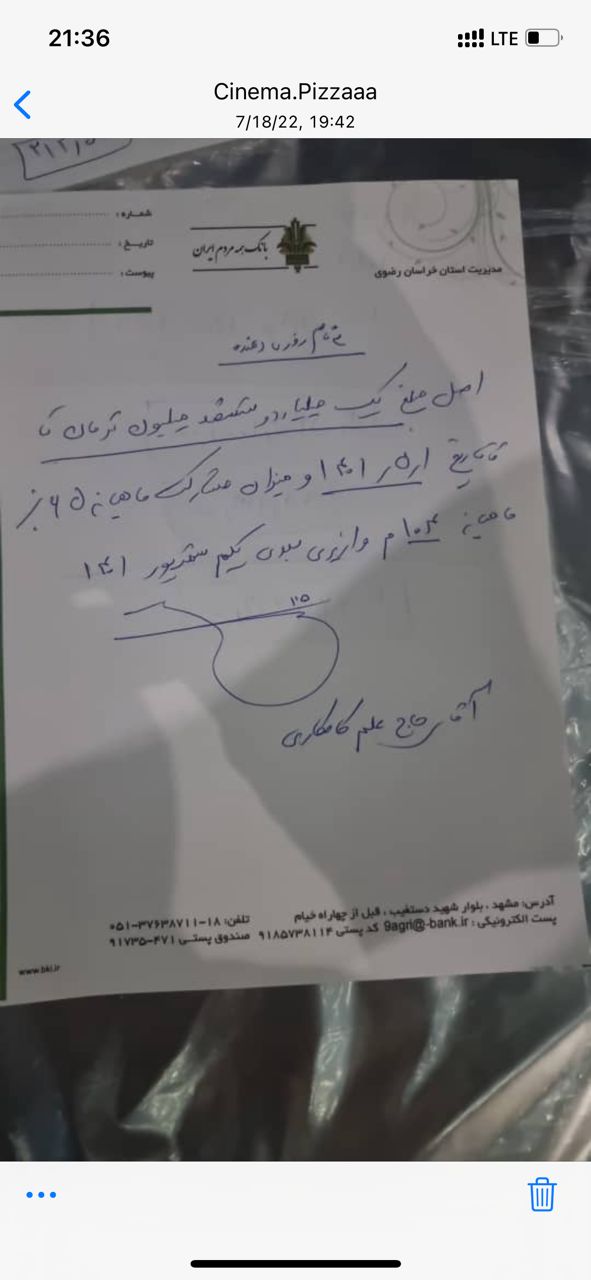 21:36
LTE
Cinema.Pizzaaa
7/18/22, 19:42
شماره:
تاریخ:
پیوست:
بانک همه مردم ایران
مدیریت استان خراسان رضوی
بنام روزی دهنده
اصل مبلغ یک میلیارد و ششصد میلیون تومان تا
تاریخ ۱ر۵ر۱۴۰۱ و میزان مشارکت ماهیانه ۶۵
ماهیانه ۱۰۴م واریزی بعدی یکم شهریور ۱۴۰۱
آقای حاج علم کامکاری
آدرس: مشهد، بلوار شهید دستغیب، قبل از چهارراه خیام
تلفن: ۱۸-۳۷۶۳۸۷۱۱-۰۵۱
پست الکترونیکی: 9agri@-bank.ir کد پستی ۹۱۸۵۷۳۸۱۱۴ صندوق پستی ۴۷۱-۹۱۷۳۵
www.bki.ir